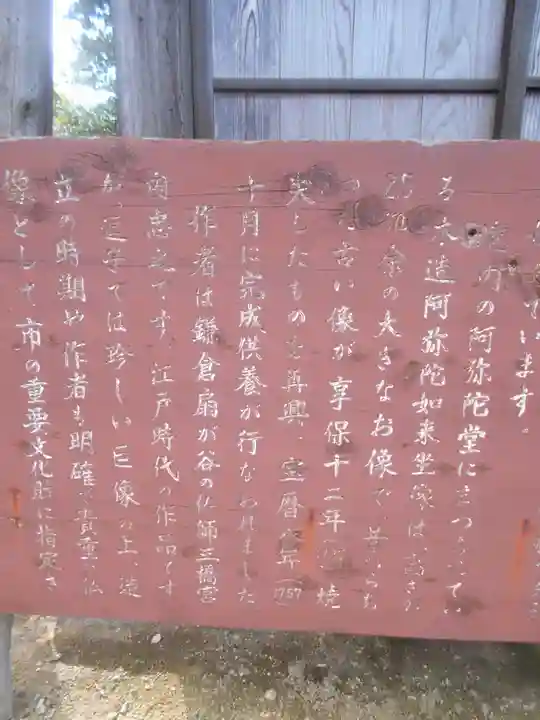 います。
の阿弥陀堂に
る木造阿弥陀如来坐像は、高さが
余の大きなお像で、昔からも
古い像が享保十二年 焼
失したものを再興、宝暦 年(1757)
十月に完成供養が行なわれました
作者は鎌倉扇が谷の仏師三橋宮
内忠之です。江戸時代の作品です
が、逗子では珍しい巨像の上、造
立の時期や作者も明確で貴重な仏
像として市の重要文化財に指定さ